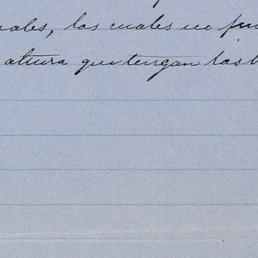 nales, las cuales no pue
altura que tengan las h